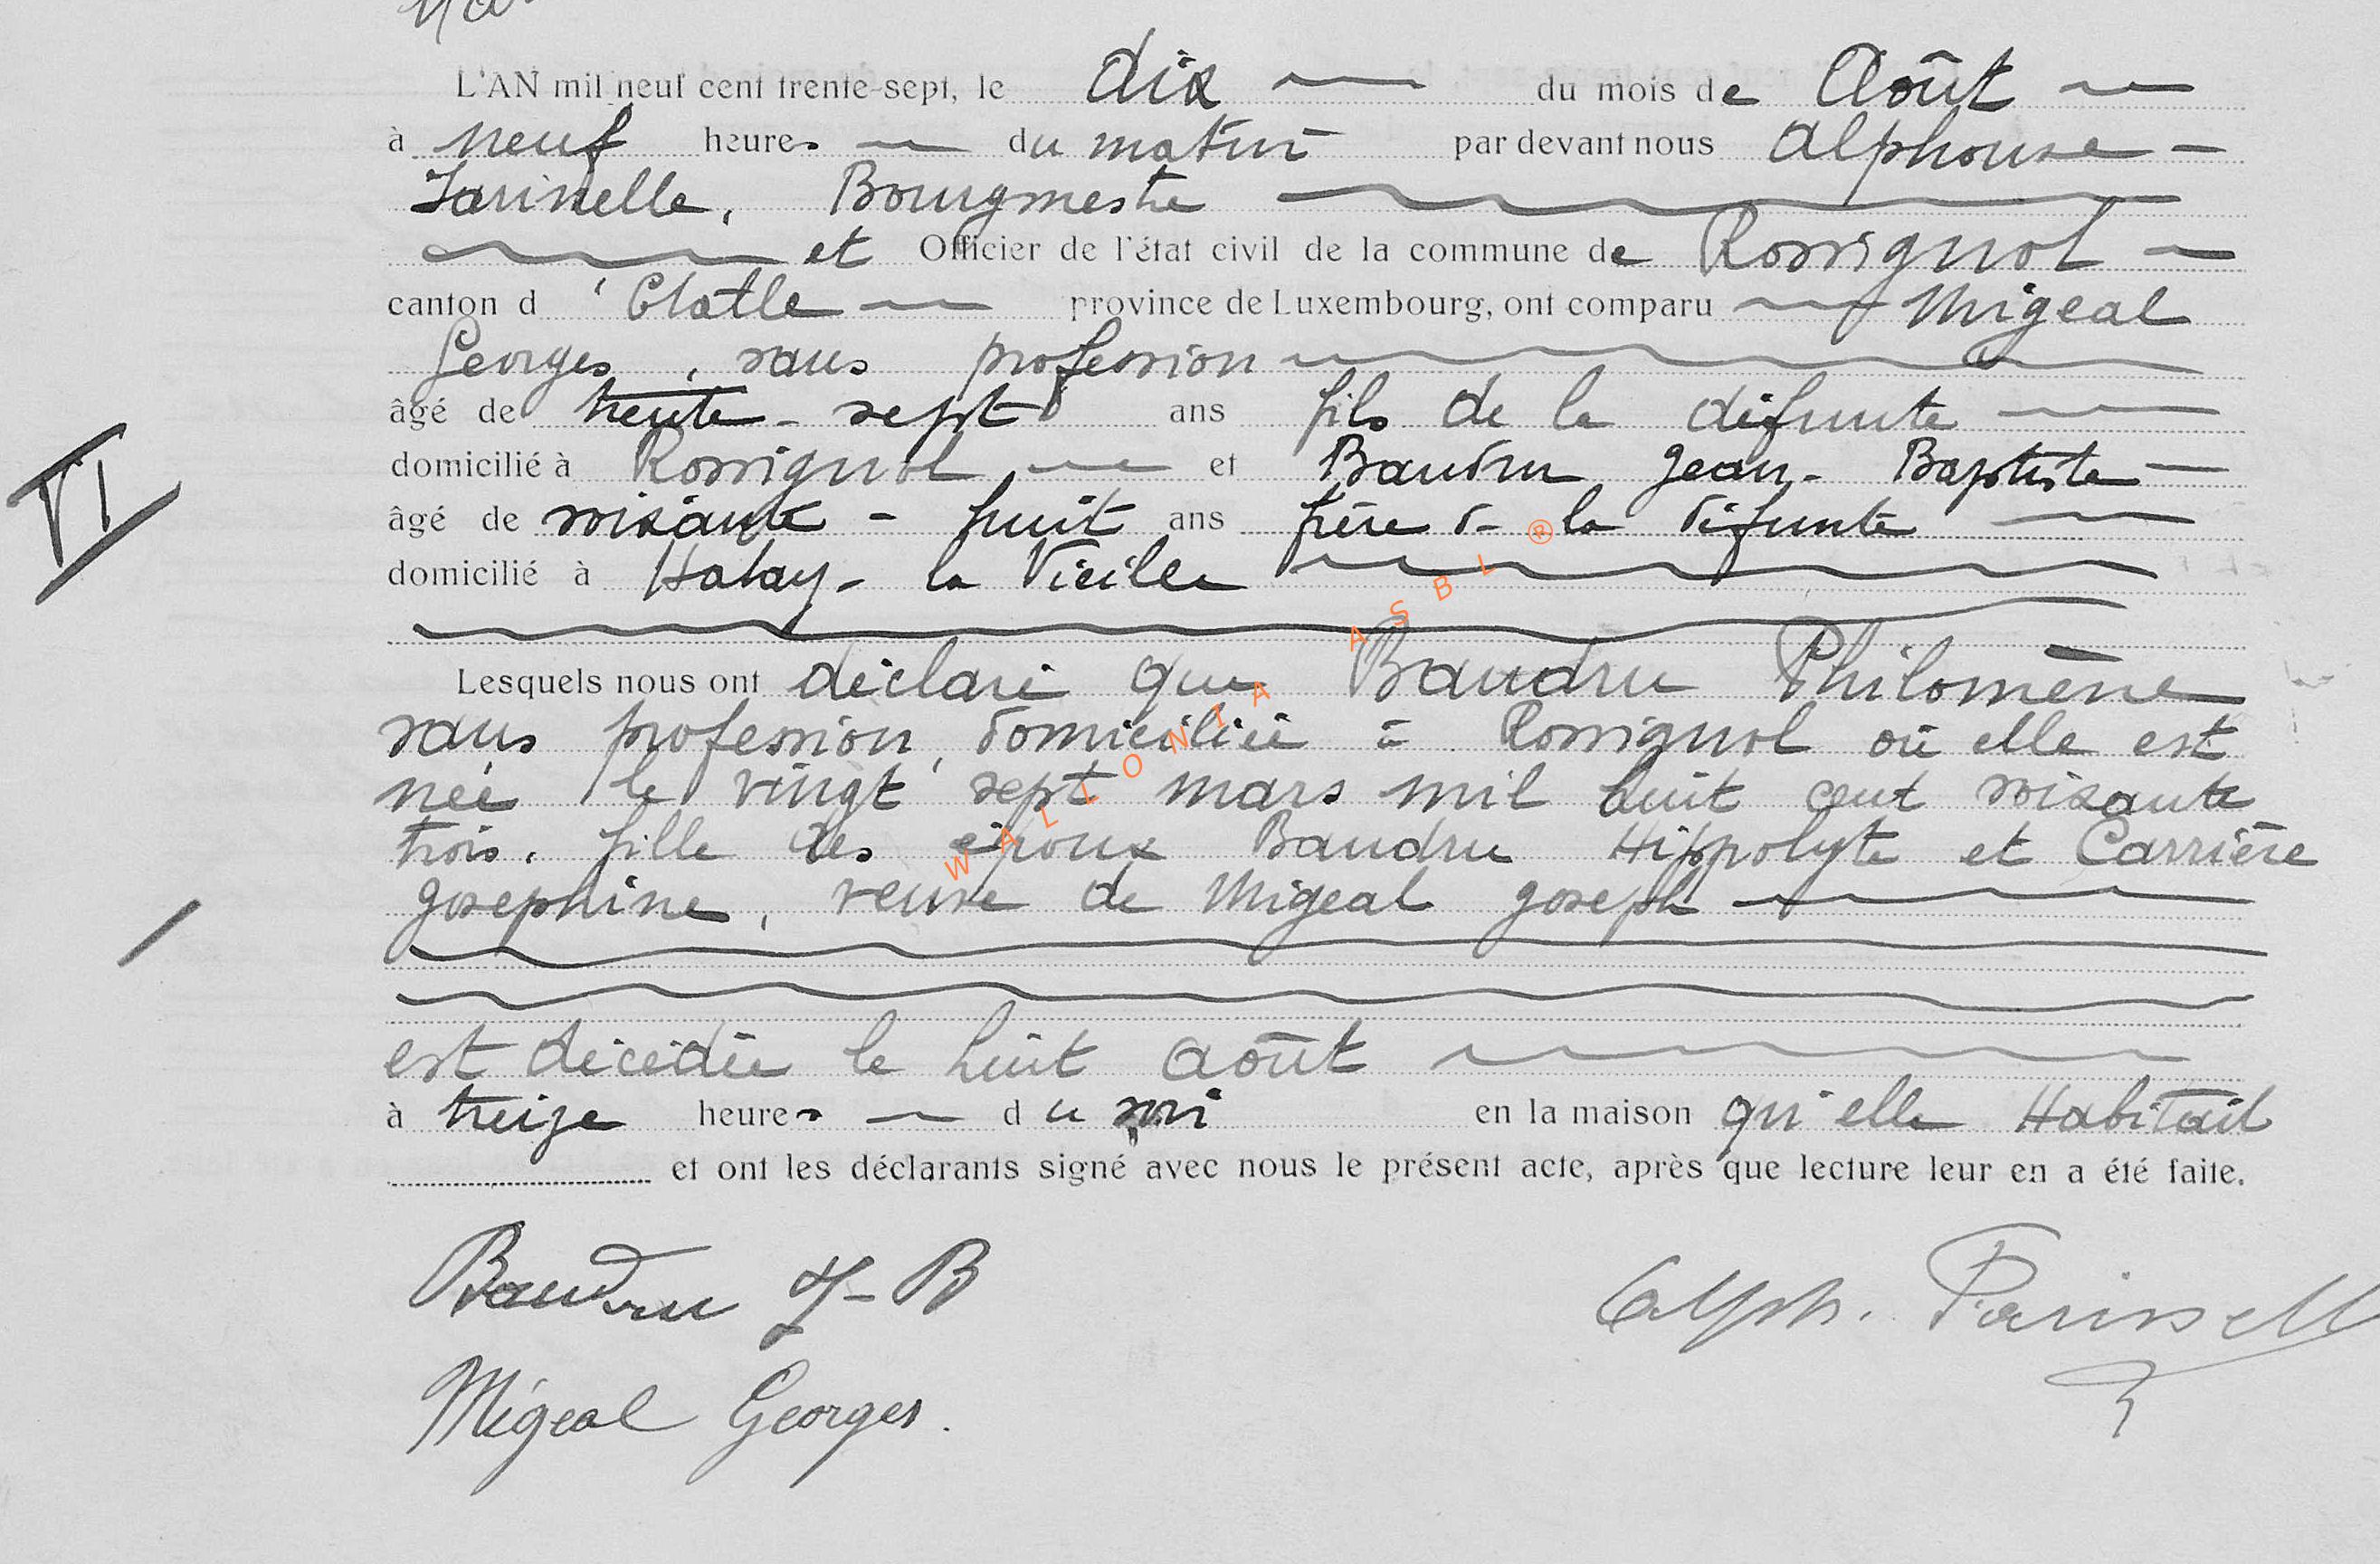 L'AN mil neuf cent trente-sept, le dix du mois de Août
à neuf heures du matin par devant nous Alphonse
Bourgmestre
et Officier de l'état civil de la commune de Rossignol
canton d'Etalle province de Luxembourg, ont comparu Migeal
Georges, sans profession
âgé de trente-sept ans fils de la défunte
domicilié à Rossignol et Baudru Jean-Baptiste
âgé de soixante-huit ans frère de la défunte
domicilié à Habay-la Vieille
Lesquels nous ont déclaré que Baudru Philomène
sans profession, domiciliée à Rossignol où elle est
née le vingt sept mars mil huit cent soixante
trois, fille des époux Baudru Hippolyte et Carrière
Josephine, veuve de Migeal Joseph
est décédée le huit août
à treize heures du soir en la maison qu'elle Habitait
et ont les déclarants signé avec nous le présent acte, après que lecture leur en a été faite.
Baudru J-B
Alph.
Migeal Georges.
VI
WALLONIA ASBL ®